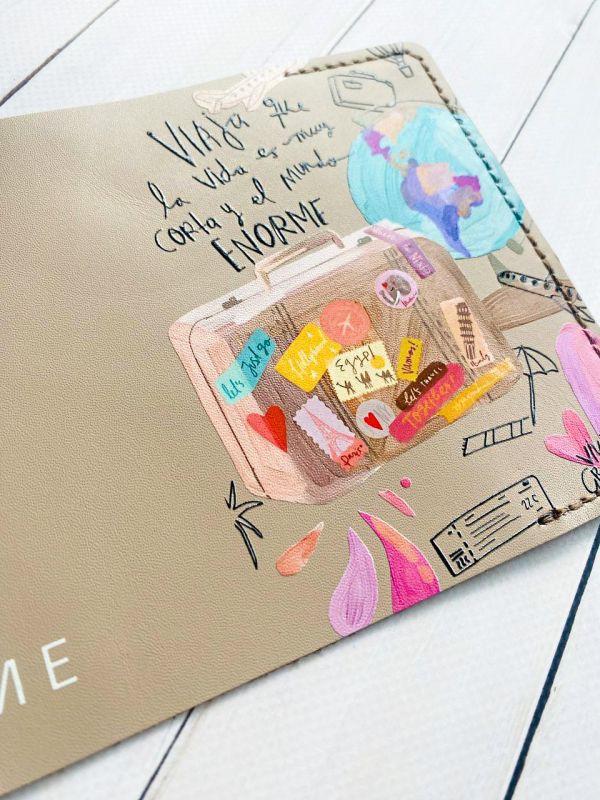 VIAJA que
la vida es muy
corta y el MUNDO
ENORME
Let's Just go
Hollywood
Vamos!
Let's TRAVEL
TOGETHER
Paris
ME